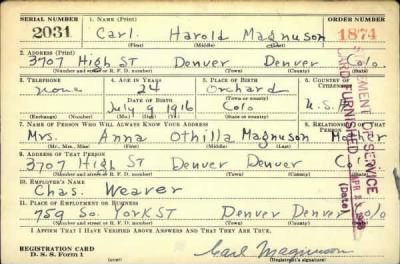 SERIAL NUMBER 1. NAME (Print) ORDER NUMBER
2031 Carl Harold Magnuson 1874
(First) (Middle) (Last)
2. ADDRESS (Print)
3707 High ST Denver Denver Colo.
(Number and street or R. F. D. number) (Town) (County) (State)
3. TELEPHONE 4. AGE IN YEARS 5. PLACE OF BIRTH 6. COUNTRY OF
none 24 Orchard
DATE OF BIRTH (Town or county)
July 9 1916 Colo U.S.A.
(Exchange) (Number) (Mo.) (Day) (Yr.) (State or country)
7. NAME OF PERSON WHO WILL ALWAYS KNOW YOUR ADDRESS 8. RELATIONSHIP OF THAT PERSON
Mrs. Anna Othilla Magnuson Mother
(Mr., Mrs., Miss) (First) (Middle) (Last)
9. ADDRESS OF THAT PERSON
3707 High ST Denver Denver Colo.
(Number and street or R. F. D. number) (Town) (County) (State)
10. EMPLOYER'S NAME
Chas. Weaver
11. PLACE OF EMPLOYMENT OR BUSINESS
759 So. York ST Denver Denver Colo
(Number and street or R. F. D. number) (Town) (County) (State)
I AFFIRM THAT I HAVE VERIFIED ABOVE ANSWERS AND THAT THEY ARE TRUE.
REGISTRATION CARD
D. S. S. Form 1 Carl Magnuson
(Registrant's signature)
OF SERVICE
FURNISHED
(Date)